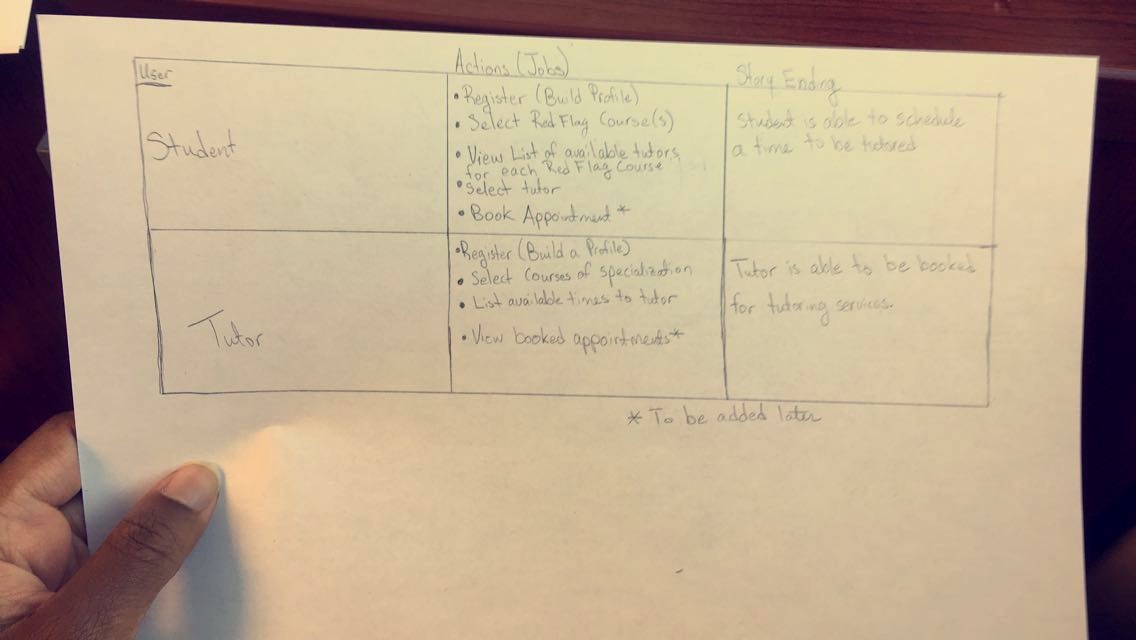 User
Actions (Jobs)
Story Ending
Student
• Register (Build Profile)
• Select Red Flag Course(s)
• View List of available tutors
for each Red Flag Course
• Select tutor
• Book Appointment *
Student is able to schedule
a time to be tutored
Tutor
• Register (Build a Profile)
• Select Courses of specialization
• List available times to tutor
• View booked appointments*
Tutor is able to be booked
for tutoring services.
* To be added later